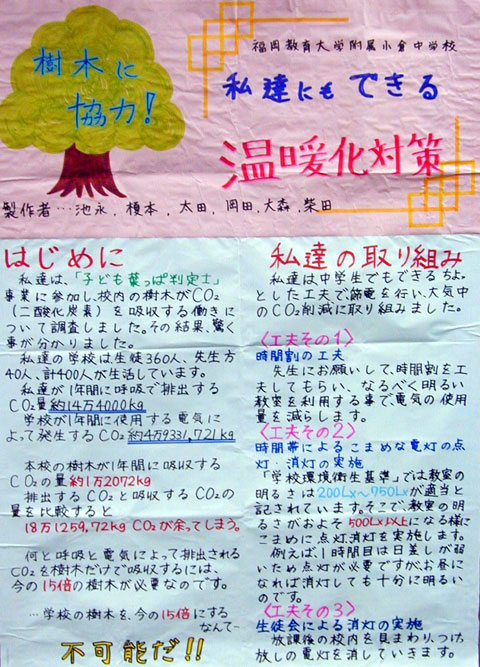 樹木に
協力!
福岡教育大学附属小倉中学校
私達にもできる
温暖化対策
製作者…池永,榎本,太田,岡田,大森,柴田
はじめに
私達は、「子ども葉っぱ判定士」
事業に参加し、校内の樹木がCO2
(二酸化炭素)を吸収する働きに
ついて調査しました。その結果、驚く
事が分かりました。
私達の学校は生徒360人、先生方
40人、計400人が生活しています。
私達が1年間に呼吸で排出する
CO2量約14万4000kg
学校が1年間に使用する電気に
よって発生するCO2約4万9331,721kg
本校の樹木が1年間に吸収する
CO2の量約1万2072kg
排出するCO2と吸収するCO2の
量を比較すると
18万1259,72kg CO2が余ってしまう。
何と呼吸と電気によって排出される
CO2を樹木だけで吸収するには、
今の15倍の樹木が必要なのです。
…学校の樹木を、今の15倍にする
なんて…
不可能だ!!
私達の取り組み
私達は中学生でもできるちょっ
とした工夫で節電を行い、大気中
のCO2削減に取り組みました。
<工夫その1>
時間割の工夫
先生にお願いして、時間割を工
夫してもらい、なるべく明るい
教室を利用する事で電気の使用
量を減らします。
<工夫その2>
時間帯によるこまめな電灯の点
灯・消灯の実施
「学校環境衛生基準」では教室の
明るさは200Lx~750Lxが適当と
記されています。そこで、教室の明
るさがおよそ500Lx以上になる様に
こまめに点灯消灯を実施します。
例えば、1時間目は日差しが弱
いため点灯が必要ですがお昼に
なれば消灯しても十分に明るい
のです。
<工夫その3>
生徒会による消灯の実施
放課後の校内を見まわり、つけ
放しの電灯を消していきます。